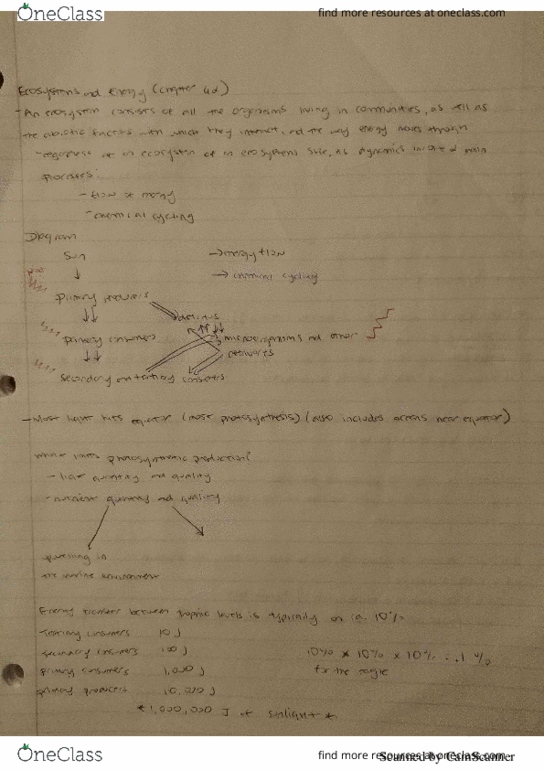 OneClass
find more resources at oneclass.com
Ecosystems and Energy (Chapter 42)
- An ecosystem consists of all the organisms living in communities, as well as
the abiotic factors with which they interact, and the way energy moves through
- regardless of an ecosystem size, dynamics involve 2 main
processes:
- flow of energy
- chemical cycling
Diagram
Sun
→ energy flow
→ chemical cycling
Primary producers
detritus
Primary consumers
microorganisms and other
detrivores
Secondary and tertiary consumers
- Most light hits equator (most photosynthesis) (also includes oceans near equator)
What limits photosynthetic production?
- light quantity and quality
- nutrient quantity and quality
upwelling in
the marine environment
Energy transfer between trophic levels is typically only 10%
Tertiary consumers 10 J
secondary consumers 100 J
10% * 10% * 10% = .1 %
primary consumers 1,000 J
for the eagle
primary producers 10,000 J
* 1,000,000 J of sunlight *
OneClass
find more resources at oneclass.com
Scanned by CamScanner